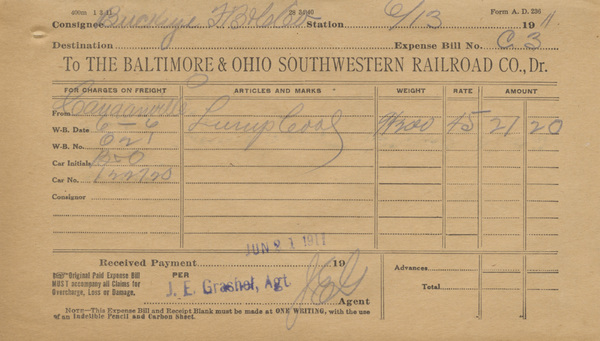 400m 1 5 11 28 8940 Form A. D. 236
Consignee Buckeye Station 6/13 1911
Destination Expense Bill No. C 3
To THE BALTIMORE & OHIO SOUTHWESTERN RAILROAD CO., Dr.
FOR CHARGES ON FREIGHT ARTICLES AND MARKS WEIGHT RATE AMOUNT
From Lump Coal 45 21 20
W-B. Date 6-6
W-B. No. 621
Car Initials B-O
Car No.
Consignor
JUN 21 1911
Received Payment 19
Original Paid Expense Bill
MUST accompany all Claims for
Overcharge, Loss or Damage.
PER
J. E. Grashel, Agt.
Agent
Advances
Total
NOTE—This Expense Bill and Receipt Blank must be made at ONE WRITING, with the use
of an Indelible Pencil and Carbon Sheet.